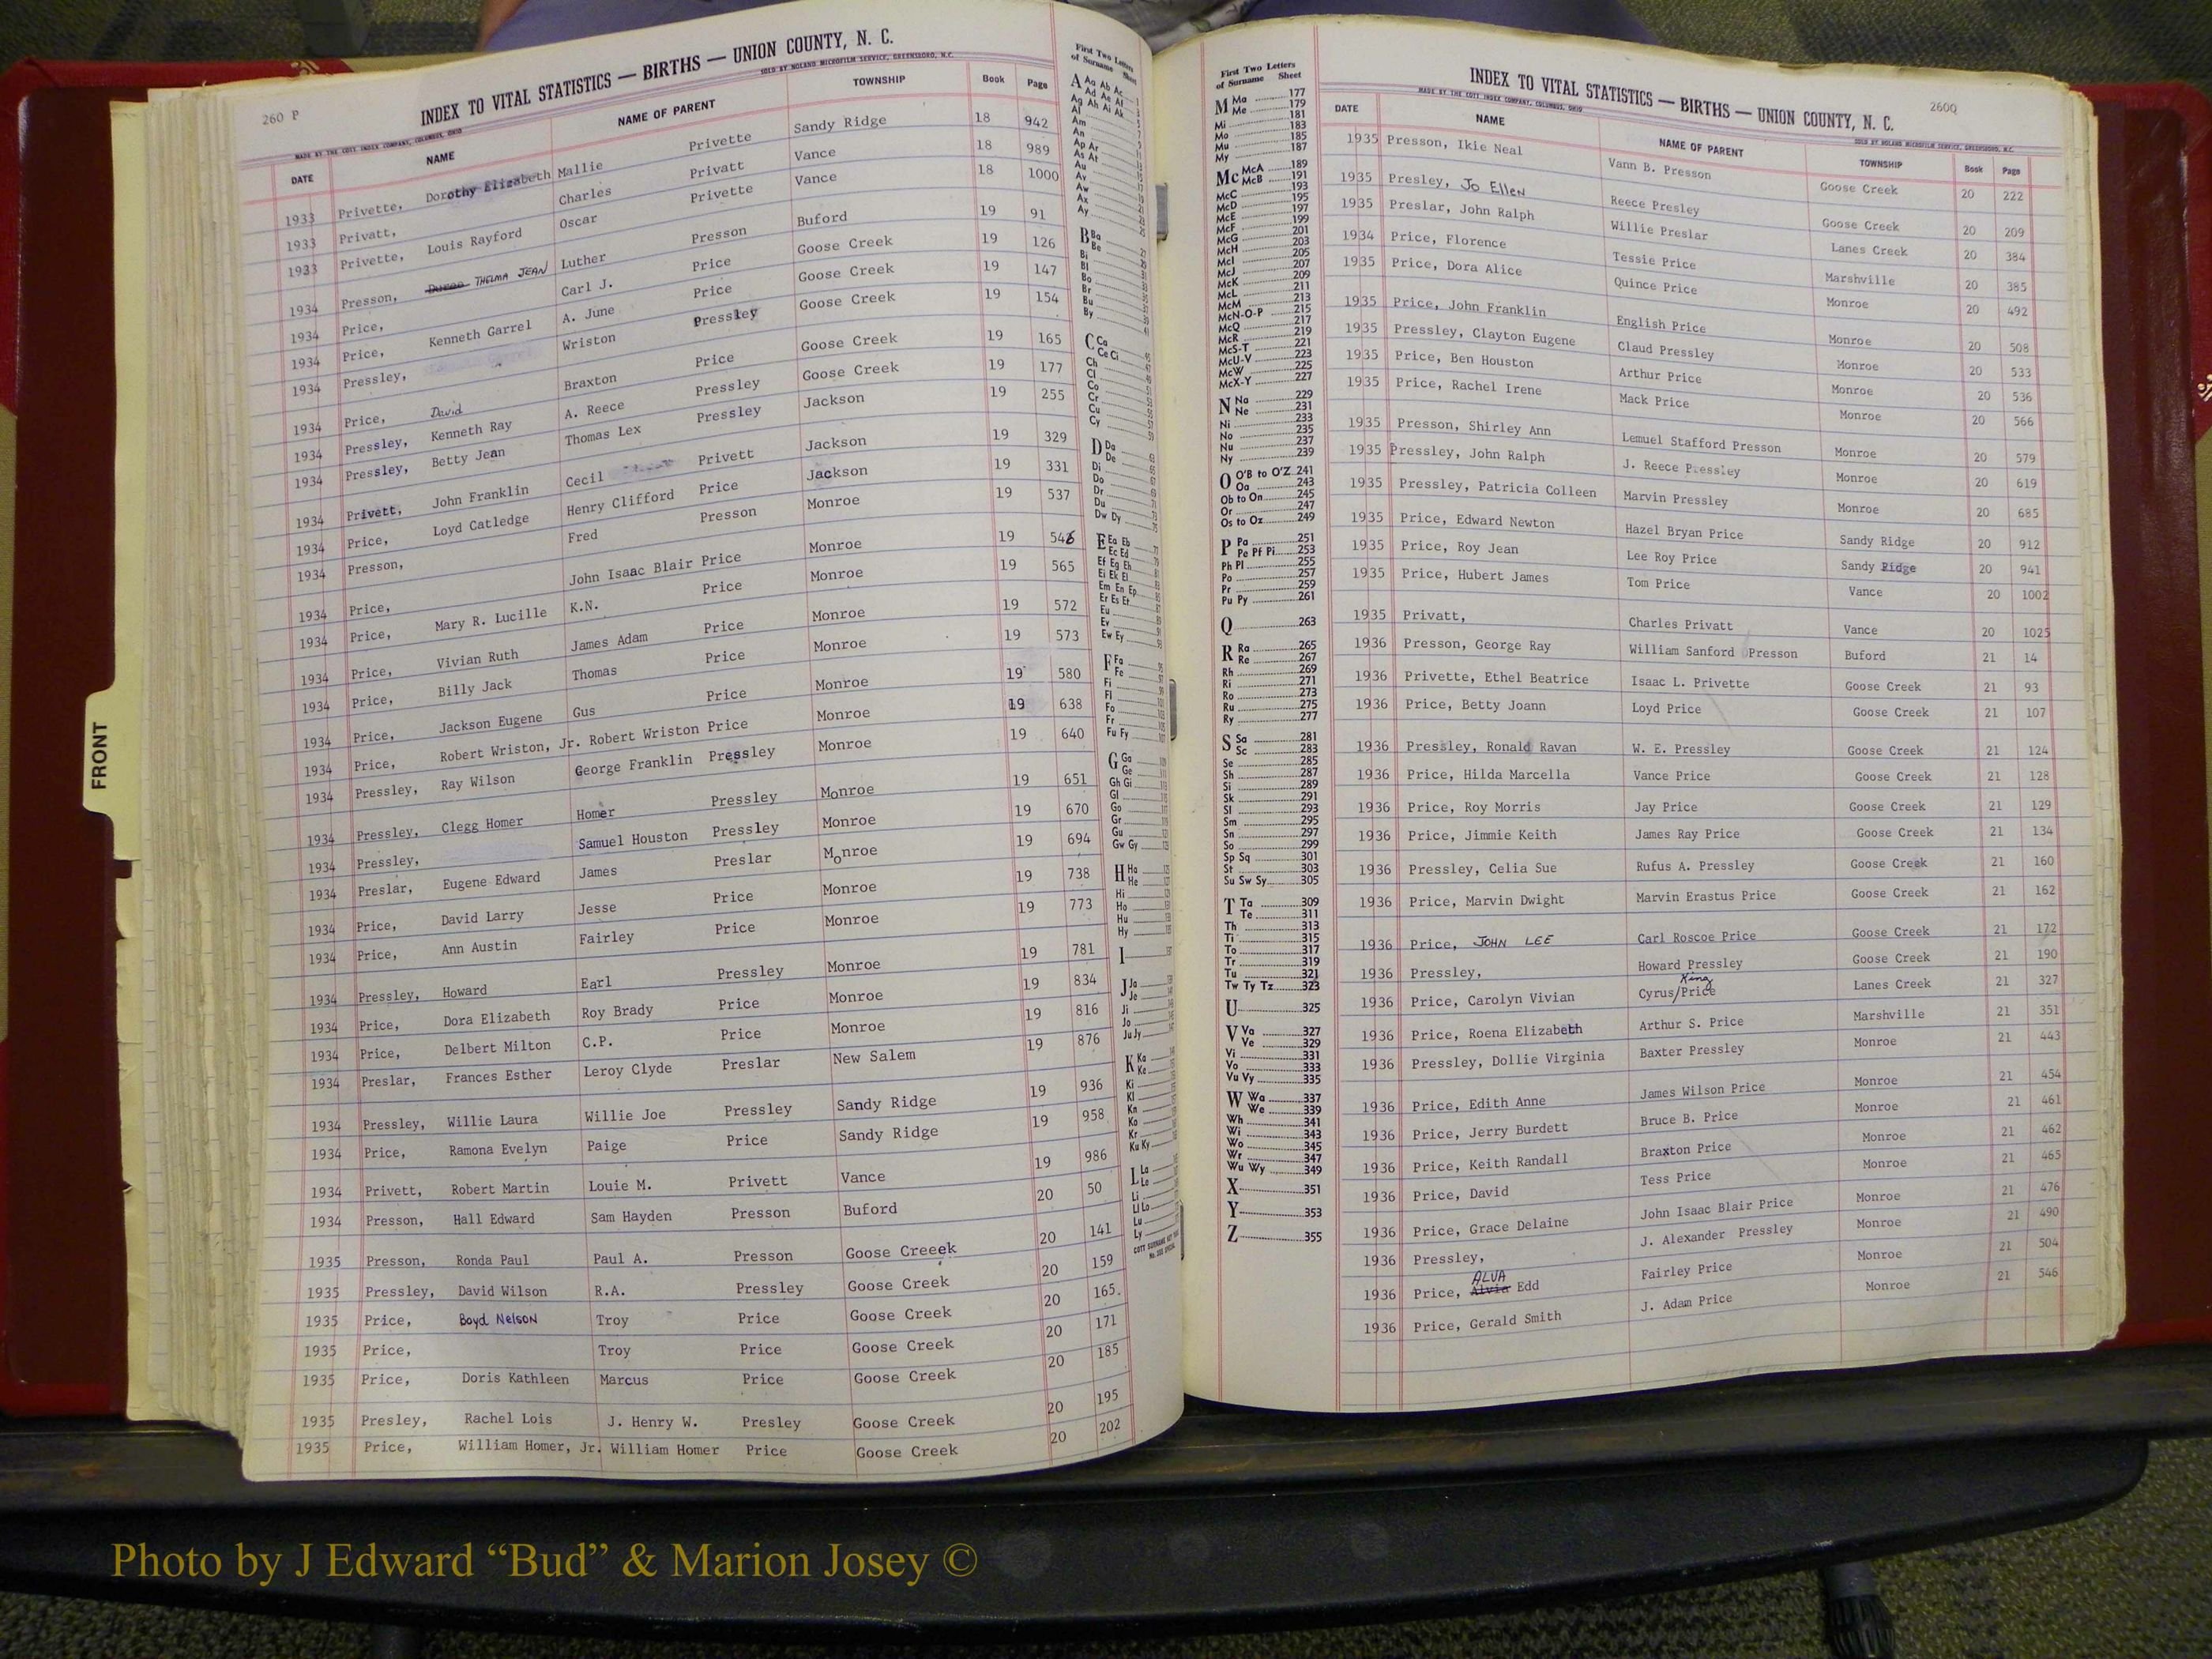 260 P
INDEX TO VITAL STATISTICS — BIRTHS — UNION COUNTY, N. C.
MADE BY THE COTT INDEX COMPANY, COLUMBUS, OHIO SOLD BY NOLAND MICROFILM SERVICE, GREENSBORO, N.C.
DATE NAME NAME OF PARENT TOWNSHIP Book Page
1933 Privette, Dorothy Elizabeth Mallie Privette Sandy Ridge 18 942
1933 Privatt, Charles Privatt Vance 18 989
1933 Privette, Louis Rayford Oscar Privette Vance 18 1000
1934 Presson, THELMA JEAN Luther Presson Buford 19 91
1934 Price, Carl J. Price Goose Creek 19 126
1934 Price, Kenneth Garrel A. June Price Goose Creek 19 147
1934 Pressley, Wriston Pressley Goose Creek 19 154
1934 Price, David Braxton Price Goose Creek 19 165
1934 Pressley, Kenneth Ray A. Reece Pressley Goose Creek 19 177
1934 Pressley, Betty Jean Thomas Lex Pressley Jackson 19 255
1934 Privett, John Franklin Cecil Privett Jackson 19 329
1934 Price, Loyd Catledge Henry Clifford Price Jackson 19 331
1934 Presson, Fred Presson Monroe 19 537
1934 Price, John Isaac Blair Price Monroe 19 546
1934 Price, Mary R. Lucille K.N. Price Monroe 19 565
1934 Price, Vivian Ruth James Adam Price Monroe 19 572
1934 Price, Billy Jack Thomas Price Monroe 19 573
1934 Price, Jackson Eugene Gus Price Monroe 19 580
1934 Price, Robert Wriston, Jr. Robert Wriston Price Monroe 19 638
1934 Pressley, Ray Wilson George Franklin Pressley Monroe 19 640
1934 Pressley, Clegg Homer Homer Pressley Monroe 19 651
1934 Pressley, Samuel Houston Pressley Monroe 19 670
1934 Preslar, Eugene Edward James Preslar Monroe 19 694
1934 Price, David Larry Jesse Price Monroe 19 738
1934 Price, Ann Austin Fairley Price Monroe 19 773
1934 Pressley, Howard Earl Pressley Monroe 19 781
1934 Price, Dora Elizabeth Roy Brady Price Monroe 19 834
1934 Price, Delbert Milton C.P. Price Monroe 19 816
1934 Preslar, Frances Esther Leroy Clyde Preslar New Salem 19 876
1934 Pressley, Willie Laura Willie Joe Pressley Sandy Ridge 19 936
1934 Price, Ramona Evelyn Paige Price Sandy Ridge 19 958
1934 Privett, Robert Martin Louie M. Privett Vance 19 986
1934 Presson, Hall Edward Sam Hayden Presson Buford 20 50
1935 Presson, Ronda Paul Paul A. Presson Goose Creeek 20 141
1935 Pressley, David Wilson R.A. Pressley Goose Creek 20 159
1935 Price, Boyd Nelson Troy Price Goose Creek 20 165.
1935 Price, Troy Price Goose Creek 20 171
1935 Price, Doris Kathleen Marcus Price Goose Creek 20 185
1935 Presley, Rachel Lois J. Henry W. Presley Goose Creek 20 195
1935 Price, William Homer, Jr. William Homer Price Goose Creek 20 202
FRONT
First Two Letters of Surname Sheet
A Aa Ab Ac
Ad Ae Af
Ag Ah Ai Ak
Al
Am
An
Ap Ar
As At
Au
Av
Aw
Ax
Ay
B Ba
Be
Bi
Bl
Bo
Br
Bu
By
C Ca
Ce Ci
Ch
Cl
Co
Cr
Cu
Cy
D Da
De
Di
Do
Dr
Du
Dw Dy
E Ea Eb
Ec Ed
Ef Eg Eh
Ei Ek El
Em En Ep
Er Es Et
Eu
Ev
Ew Ey
F Fa
Fe
Fi
Fl
Fo
Fr
Fu Fy
G Ga
Ge
Gh Gi
Gl
Go
Gr
Gu
Gw Gy
H Ha
He
Hi
Ho
Hu
Hy
I
J Ja
Je
Ji
Jo
Ju Jy
K Ka
Ke
Ki
Kl
Kn
Ko
Kr
Ku Ky
L La
Le
Li
Ll Lo
Lu
Ly
First Two Letters of Surname Sheet
M Ma 177
Me 179
Mi 181
Mo 183
Mu 185
My 187
Mc McA 189
McB 191
McC 193
McD 195
McE 197
McF 199
McG 201
McH 203
McI 205
McJ 207
McK 209
McL 211
McM 213
McN-O-P 215
McQ 217
McR 219
McS-T 221
McU-V 223
McW 225
McX-Y 227
N Na 229
Ne 231
Ni 233
No 235
Nu 237
Ny 239
O O'B to O'Z 241
Oa 243
Ob to On 245
Or 247
Os to Oz 249
P Pa 251
Pe Pf Pi 253
Ph Pl 255
Po 257
Pr 259
Pu Py 261
Q 263
R Ra 265
Re 267
Rh 269
Ri 271
Ro 273
Ru 275
Ry 277
S Sa 281
Sc 283
Se 285
Sh 287
Si 289
Sk 291
Sl 293
Sm 295
Sn 297
So 299
Sp Sq 301
St 303
Su Sw Sy 305
T Ta 309
Te 311
Th 313
Ti 315
To 317
Tr 319
Tu 321
Tw Ty Tz 323
U 325
V Va 327
Ve 329
Vi 331
Vo 333
Vu Vy 335
W Wa 337
We 339
Wh 341
Wi 343
Wo 345
Wr 347
Wu Wy 349
X 351
Y 353
Z 355
260Q
INDEX TO VITAL STATISTICS — BIRTHS — UNION COUNTY, N. C.
MADE BY THE COTT INDEX COMPANY, COLUMBUS, OHIO SOLD BY NOLAND MICROFILM SERVICE, GREENSBORO, N.C.
DATE NAME NAME OF PARENT TOWNSHIP Book Page
1935 Presson, Ikie Neal Vann B. Presson Goose Creek 20 222
1935 Presley, Jo Ellen Reece Presley Goose Creek 20 209
1935 Preslar, John Ralph Willie Preslar Lanes Creek 20 384
1934 Price, Florence Tessie Price Marshville 20 385
1935 Price, Dora Alice Quince Price Monroe 20 492
1935 Price, John Franklin English Price Monroe 20 508
1935 Pressley, Clayton Eugene Claud Pressley Monroe 20 533
1935 Price, Ben Houston Arthur Price Monroe 20 536
1935 Price, Rachel Irene Mack Price Monroe 20 566
1935 Presson, Shirley Ann Lemuel Stafford Presson Monroe 20 579
1935 Pressley, John Ralph J. Reece Pressley Monroe 20 619
1935 Pressley, Patricia Colleen Marvin Pressley Monroe 20 685
1935 Price, Edward Newton Hazel Bryan Price Sandy Ridge 20 912
1935 Price, Roy Jean Lee Roy Price Sandy Ridge 20 941
1935 Price, Hubert James Tom Price Vance 20 1002
1935 Privatt, Charles Privatt Vance 20 1025
1936 Presson, George Ray William Sanford Presson Buford 21 14
1936 Privette, Ethel Beatrice Isaac L. Privette Goose Creek 21 93
1936 Price, Betty Joann Loyd Price Goose Creek 21 107
1936 Pressley, Ronald Ravan W. E. Pressley Goose Creek 21 124
1936 Price, Hilda Marcella Vance Price Goose Creek 21 128
1936 Price, Roy Morris Jay Price Goose Creek 21 129
1936 Price, Jimmie Keith James Ray Price Goose Creek 21 134
1936 Pressley, Celia Sue Rufus A. Pressley Goose Creek 21 160
1936 Price, Marvin Dwight Marvin Erastus Price Goose Creek 21 162
1936 Price, JOHN LEE Carl Roscoe Price Goose Creek 21 172
1936 Pressley, Howard Pressley Goose Creek 21 190
1936 Price, Carolyn Vivian Cyrus/King Price Lanes Creek 21 327
1936 Price, Roena Elizabeth Arthur S. Price Marshville 21 351
1936 Pressley, Dollie Virginia Baxter Pressley Monroe 21 443
1936 Price, Edith Anne James Wilson Price Monroe 21 454
1936 Price, Jerry Burdett Bruce B. Price Monroe 21 461
1936 Price, Keith Randall Braxton Price Monroe 21 462
1936 Price, David Tess Price Monroe 21 465
1936 Price, Grace Delaine John Isaac Blair Price Monroe 21 476
1936 Pressley, J. Alexander Pressley Monroe 21 490
1936 Price, ALVA Alvia Edd Fairley Price Monroe 21 504
1936 Price, Gerald Smith J. Adam Price Monroe 21 546
Photo by J Edward “Bud” & Marion Josey ©